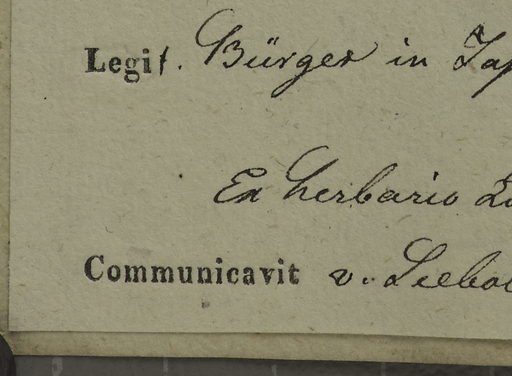 Legit. Bürger in Jap
Ex herbario Zu
Communicavit v. Siebol